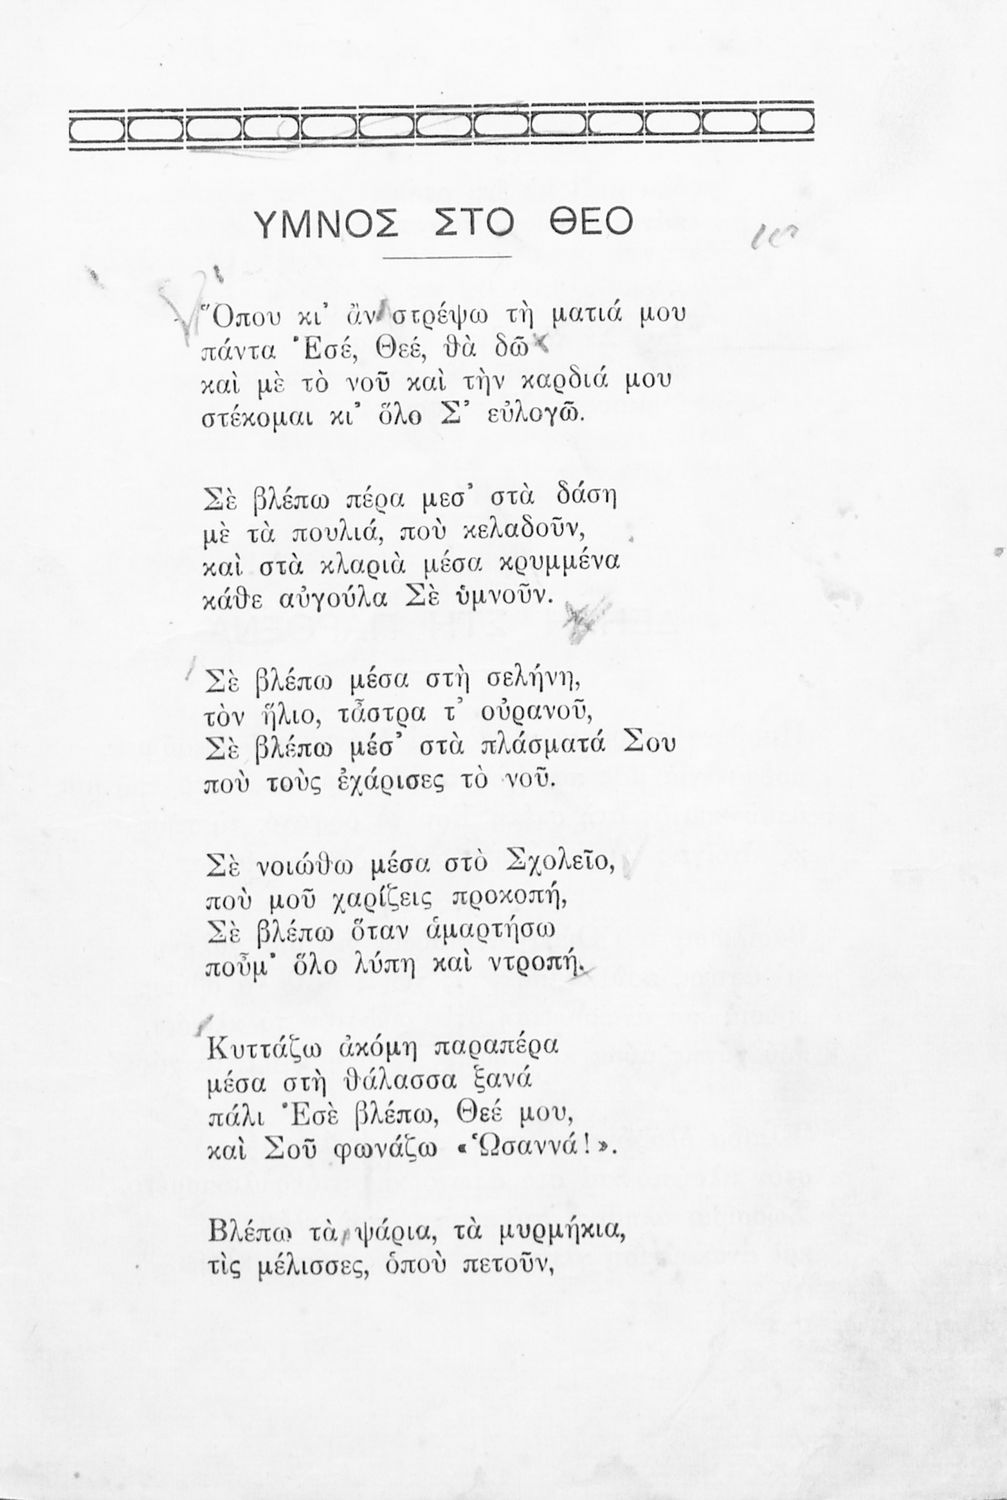 ΥΜΝΟΣ ΣΤΟ ΘΕΟ
Ὅπου κι' ἂν στρέψω τὴ ματιά μου
πάντα Ἐσέ, Θεέ, θὰ δῶ
καὶ μὲ τὸ νοῦ καὶ τὴν καρδιά μου
στέκομαι κι' ὅλο Σ' εὐλογῶ.
Σὲ βλέπω πέρα μεσ' στὰ δάση
μὲ τὰ πουλιά, ποὺ κελαδοῦν,
καὶ στὰ κλαριὰ μέσα κρυμμένα
κάθε αὐγούλα Σὲ ὑμνοῦν.
Σὲ βλέπω μέσα στὴ σελήνη,
τὸν ἥλιο, τἆστρα τ' οὐρανοῦ,
Σὲ βλέπω μέσ' στὰ πλάσματά Σου
ποὺ τοὺς ἐχάρισες τὸ νοῦ.
Σὲ νοιώθω μέσα στὸ Σχολεῖο,
ποὺ μοῦ χαρίζεις προκοπή,
Σὲ βλέπω ὅταν ἁμαρτήσω
ποὖμ' ὅλο λύπη καὶ ντροπή.
Κυττάζω ἀκόμη παραπέρα
μέσα στὴ θάλασσα ξανά
πάλι Ἐσὲ βλέπω, Θεέ μου,
καὶ Σοῦ φωνάζω «Ὡσαννά!».
Βλέπω τὰ ψάρια, τὰ μυρμήκια,
τὶς μέλισσες, ὁποὺ πετοῦν,